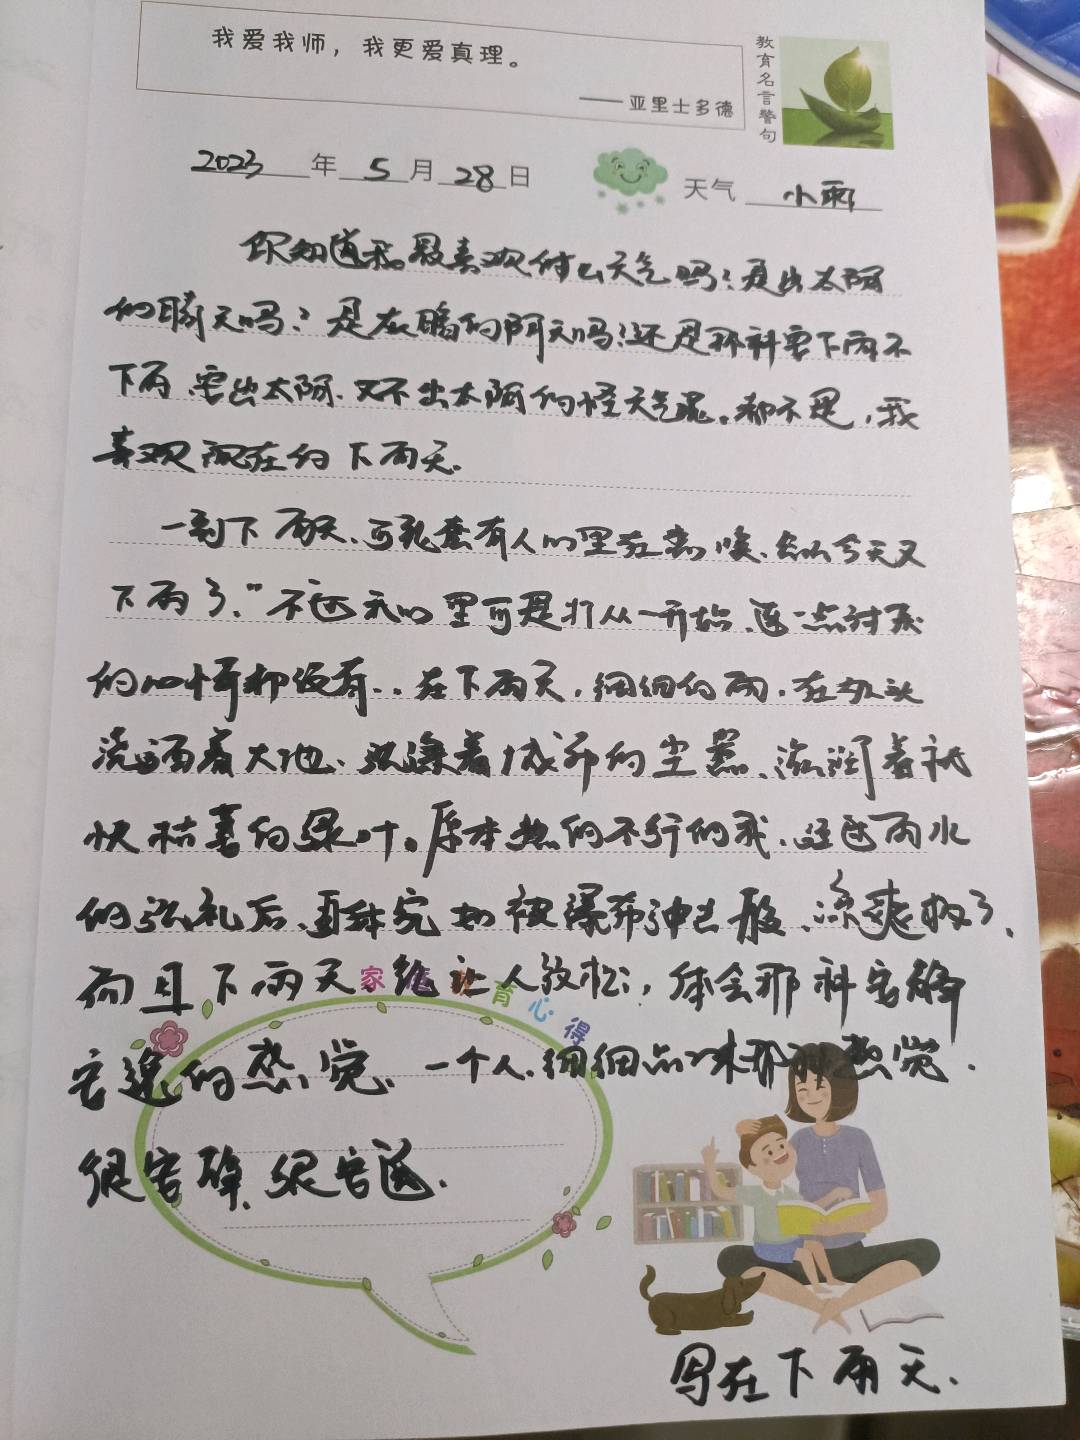 我爱我师，我更爱真理。
——亚里士多德
教育名言警句
2023年5月28日
天气 小雨
你知道我最喜欢什么天气吗？是出太阳
的晴天吗？是在的阴天吗？还是那种要下雨不
下雨、要出太阳、又不出太阳的怪天气呢。都不是，我
喜欢现在的下雨天.
一到下雨天、可能会有人心里在想"唉、怎么今天又
下雨了、"不过我心里可是打从一开始、连一点讨厌
的心情都没有..在下雨天，细细的雨，在
浇洒着大地、洗涤着城市的尘嚣、滋润着就
快枯萎的绿叶。原本热的不行的我、经过雨水
的洗礼后、宛如被瀑布冲去般、凉爽极了、
而且下雨天、能让人放松，体会那种安静
安逸的感觉、一个人、细细品味那种感觉.
很安静、很
家教育心得
写在下雨天.